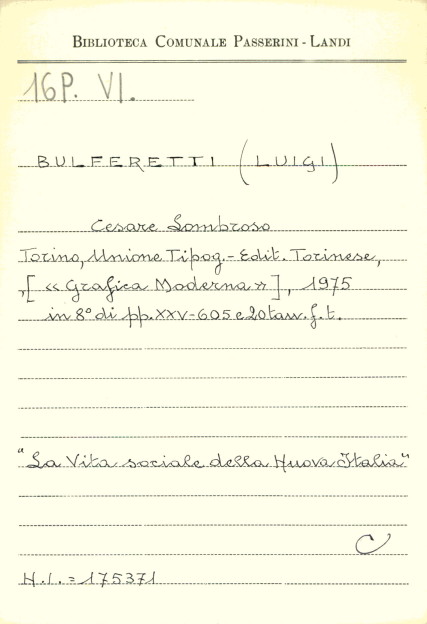 BIBLIOTECA COMUNALE PASSERINI - LANDI
16P. VI.
BULFERETTI (LUIGI)
Cesare Lombroso
Torino, Unione Tipog.- Edit. Torinese,
,[ << Grafica Moderna >> ], 1975
in 8° di pp. XXV-605 e 20 tav. f. t.
"La Vita sociale della Nuova Italia"
C
N.I. = 175371